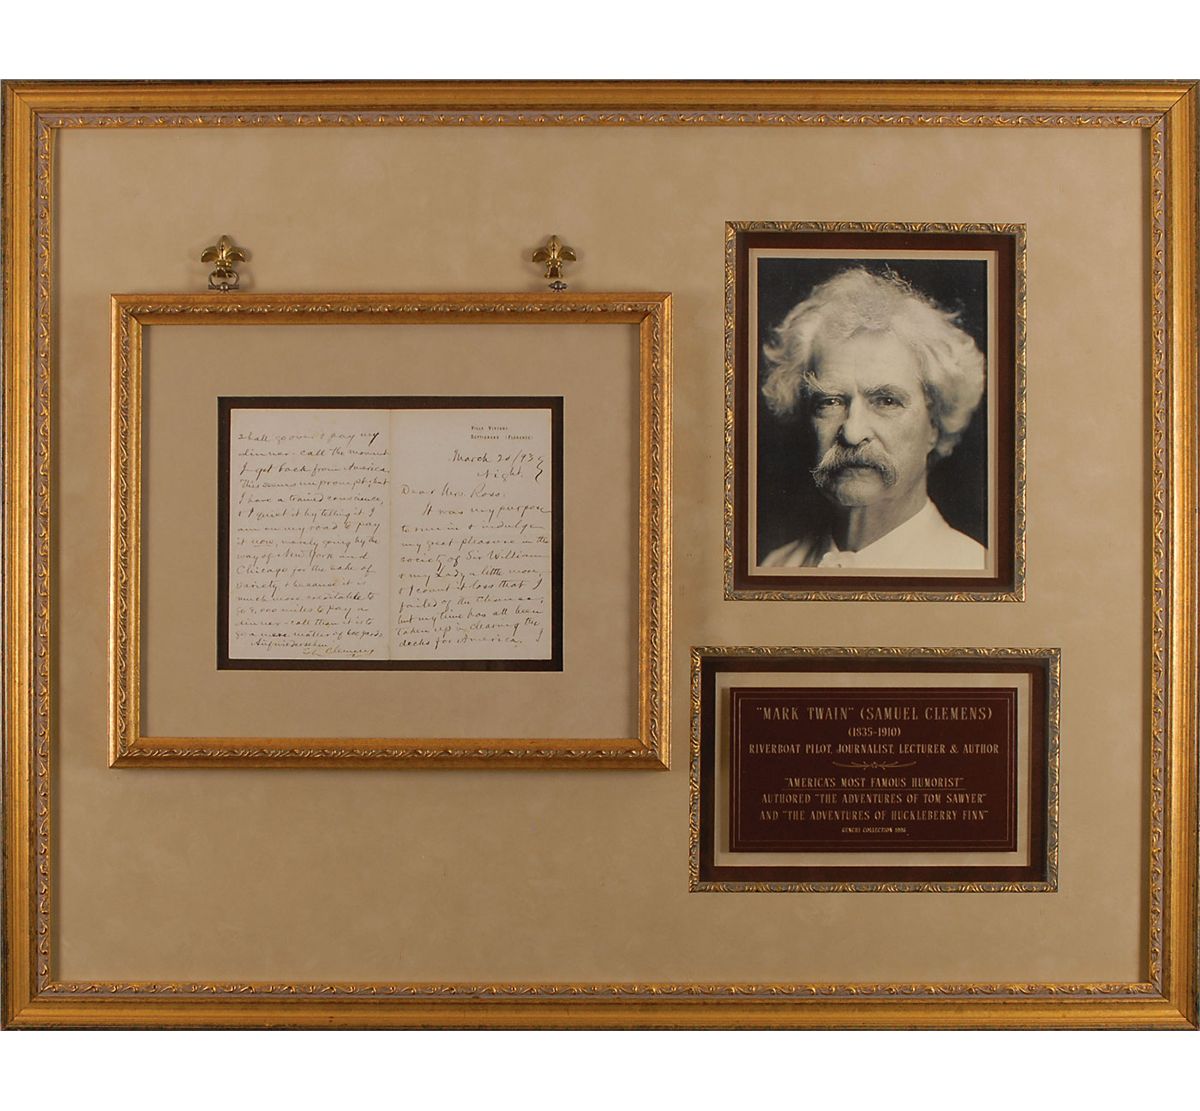 VILLA VIVIANI
SETTIGNANO (FLORENCE)
March 20/93
Night.
Dear Mrs. Ross:
It was my purpose
to run in & indulge
my great pleasure in the
society of Sir William
& my Lady a little more,
& I count it loss that I
failed of the chance;
but my time has all been
taken up in clearing the
decks for America. I
shall go over & pay my
dinner-call the moment
I get back from America.
This seems unprompt; but
I have a trained conscience,
& I quiet it by telling it I
am on my road to pay
it now, merely going by
way of New York and
Chicago for the sake of
variety & because it is
much more creditable to
go 8,000 miles to pay a
dinner-call than it is to
go a mere matter of 600 yards.
S. L. Clemens
"MARK TWAIN" (SAMUEL CLEMENS)
(1835-1910)
RIVERBOAT PILOT, JOURNALIST, LECTURER & AUTHOR
"AMERICA'S MOST FAMOUS HUMORIST"
AUTHORED "THE ADVENTURES OF TOM SAWYER"
AND "THE ADVENTURES OF HUCKLEBERRY FINN"
COLLECTION